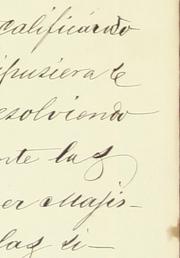 calificando
ipusiera de
esolviendo
nte las
er Majis-
las si-